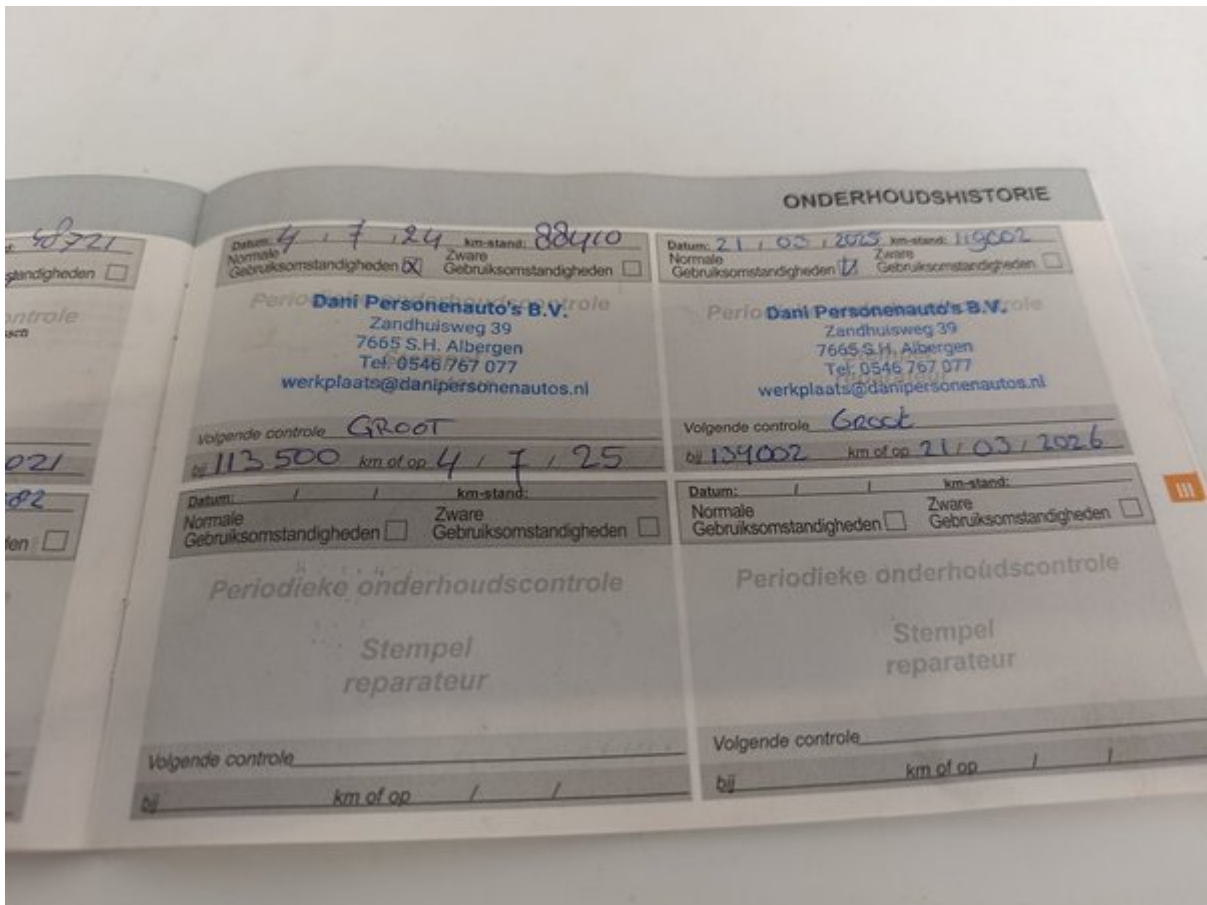 ONDERHOUDSHISTORIE
48721
standigheden
ontrole
021
82
den
Datum: 4 / 7 / 24 km-stand: 88410
Normale Zware
Gebruiksomstandigheden Gebruiksomstandigheden
Periodieke onderhoudscontrole
Dani Personenauto's B.V.
Zandhuisweg 39
7665 S.H. Albergen
Tel: 0546 767 077
werkplaats@danipersonenautos.nl
Volgende controle GROOT
bij 113 500 km of op 4 / 7 / 25
Datum: 21 / 03 / 2025 km-stand: 119002
Normale Zware
Gebruiksomstandigheden Gebruiksomstandigheden
Dani Personenauto's B.V.
Zandhuisweg 39
7665 S.H. Albergen
Tel: 0546 767 077
werkplaats@danipersonenautos.nl
Volgende controle Groot
bij 139002 km of op 21 / 03 / 2026
Datum: / / km-stand:
Normale Zware
Gebruiksomstandigheden Gebruiksomstandigheden
Periodieke onderhoudscontrole
Stempel
reparateur
Volgende controle
bij km of op / /
Datum: / / km-stand:
Normale Zware
Gebruiksomstandigheden Gebruiksomstandigheden
Periodieke onderhoudscontrole
Stempel
reparateur
Volgende controle
bij km of op / /